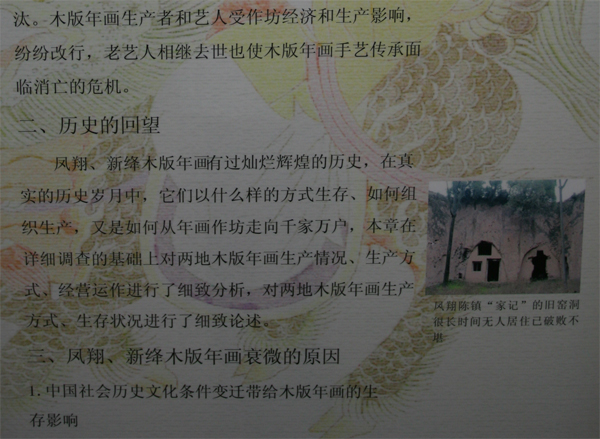 汰。木版年画生产者和艺人受作坊经济和生产影响，
纷纷改行，老艺人相继去世也使木版年画手艺传承面
临消亡的危机。
二、历史的回望
凤翔、新绛木版年画有过灿烂辉煌的历史，在真
实的历史岁月中，它们以什么样的方式生存、如何组
织生产，又是如何从年画作坊走向千家万户，本章在
详细调查的基础上对两地木版年画生产情况、生产方
式、经营运作进行了细致分析，对两地木版年画生产
方式、生存状况进行了细致论述。
凤翔陈镇“家记”的旧窑洞
很长时间无人居住已破败不
堪
三、凤翔、新绛木版年画衰微的原因
1.中国社会历史文化条件变迁带给木版年画的生
存影响